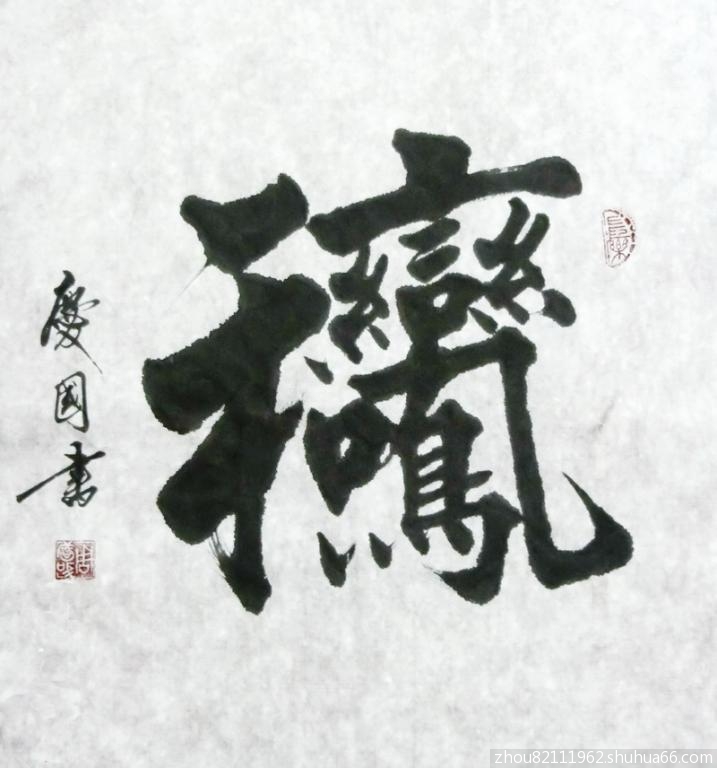 鸞鳳和鳴
慶國書
zhou82111962.shuhua66.com